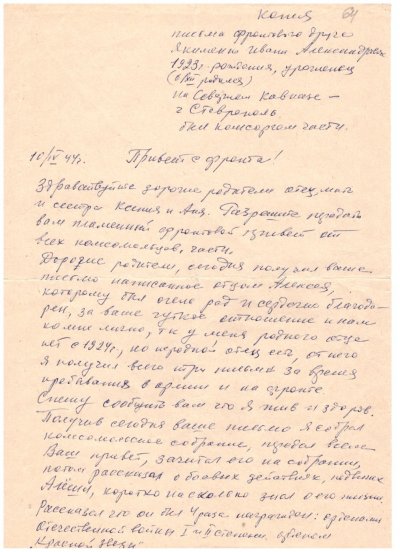 копия 64
письма фронтового друга
Якименко Ивана Александровича
1923г. рождения, уроженец
на Северном Кавказе –
г Ставрополь
был комсоргом части.
10/IV 44г. Привет с фронта!
Здравствуйте дорогие родители отец, мать
и сестра Ксения и Аня. Разрешите передать
вам пламенный фронтовой привет от
всех комсомольцев, части.
Дорогие родители, сегодня получил ваше
письмо написанное отцом Алексея,
которому был очень рад и сердечно благода-
рен, за ваше чуткое отношение и нам
ко мне лично, т.к у меня родного отца
нет с 1924г, но неродной отец есть, от него
я получил всего три письма за время
пребывания в армии и на фронте
Спешу сообщить вам что я жив и здоров.
Получив сегодня ваше письмо я собрал
комсомольское собрание, передал всем
Ваш привет, зачитал его на собрании,
потом рассказал о боевых действиях, подвигах
Алёши, коротко насколько знал о его жизни
Рассказал что он был 4 раза награжден: орденами
Отечественной войны I и II степени, орденом
Красной звезды